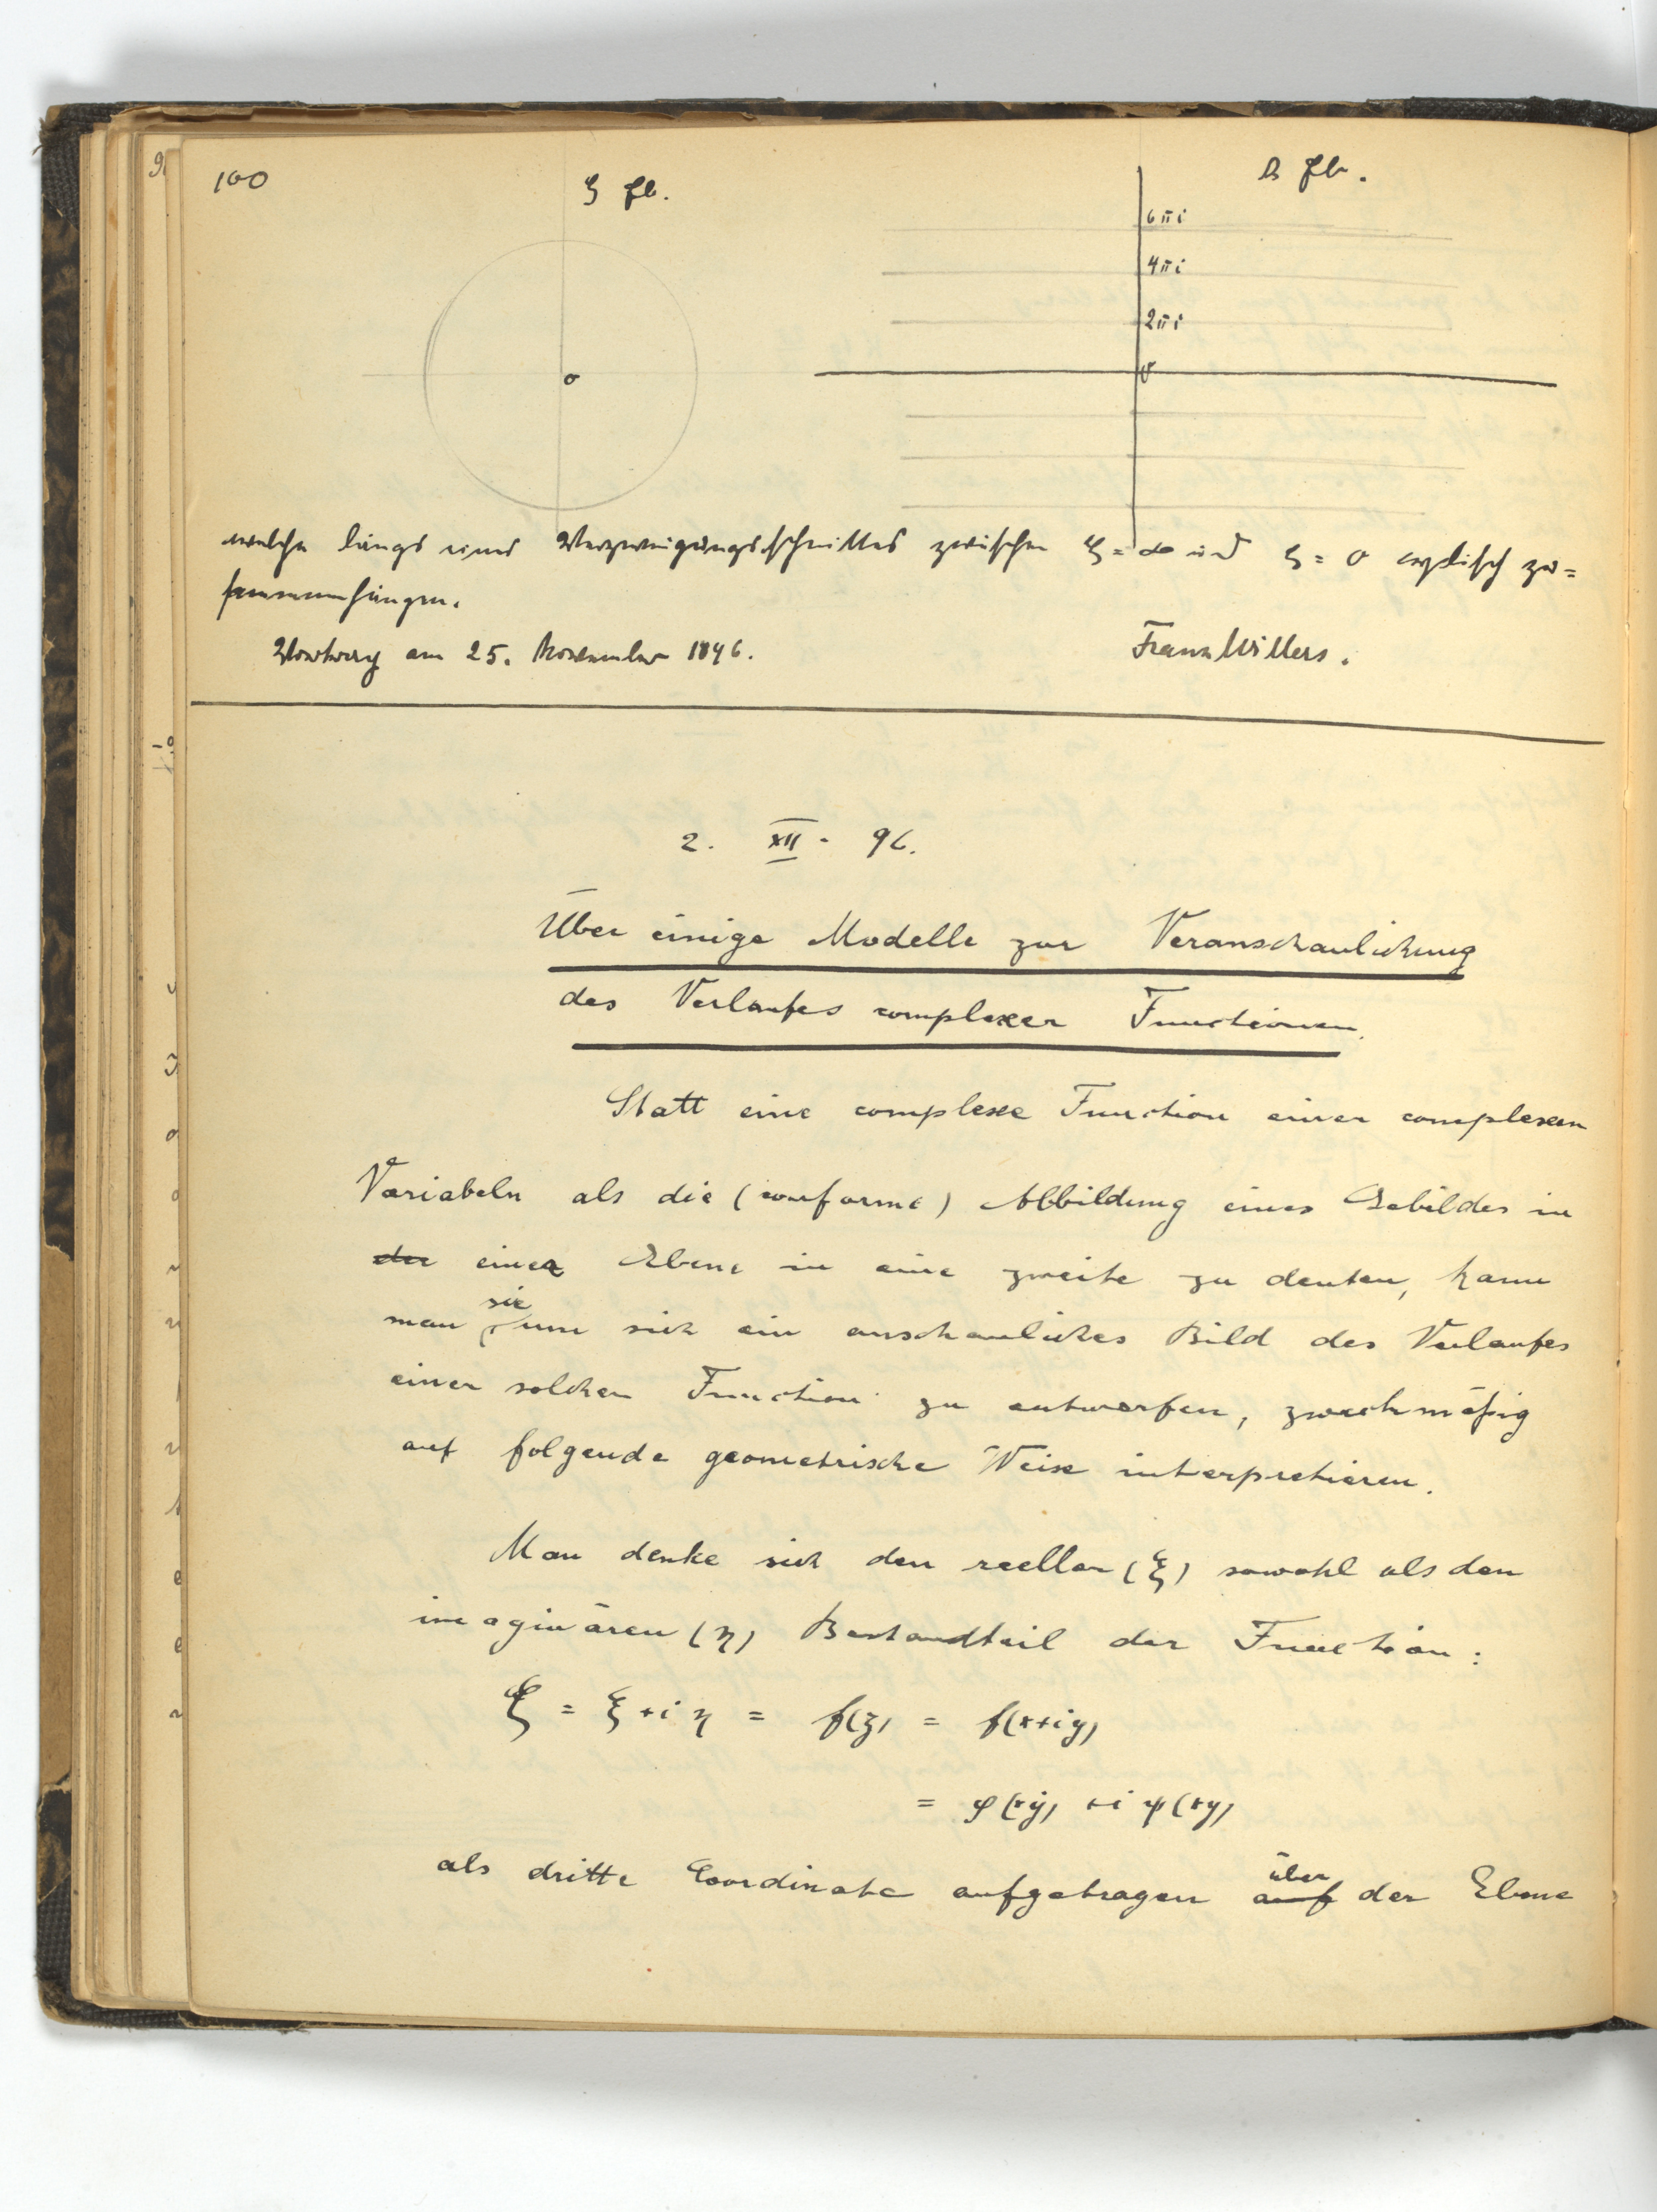 100
ζ Fl.
s Fl.
6πi
4πi
2πi
0
0
welche längs eines Verzweigungsschnittes zwischen ζ = ∞ und ζ = 0 cyklisch zu=
sammenhängen.
am 25. November 1896.
Franz Willers.
2. XII. 96.
Über einige Modelle zur Veranschaulichung
des Verlaufes complexer Functionen.
Statt eine complexe Function einer complexen
Variabeln als die (conforme) Abbildung eines Gebildes in
der einer Ebene in eine zweite zu deuten, kann
man sie um sich ein anschauliches Bild des Verlaufes
einer solchen Function zu entwerfen, zweckmäßig
auf folgende geometrische Weise interpretieren.
Man denke sich den reellen (ξ) sowohl als den
imaginären (η) Bestandteil der Function:
ζ = ξ + i η = f(z) = f(x+iy)
= φ(xy) + i ψ(xy)
als dritte Coordinate aufgetragen auf über der Ebene